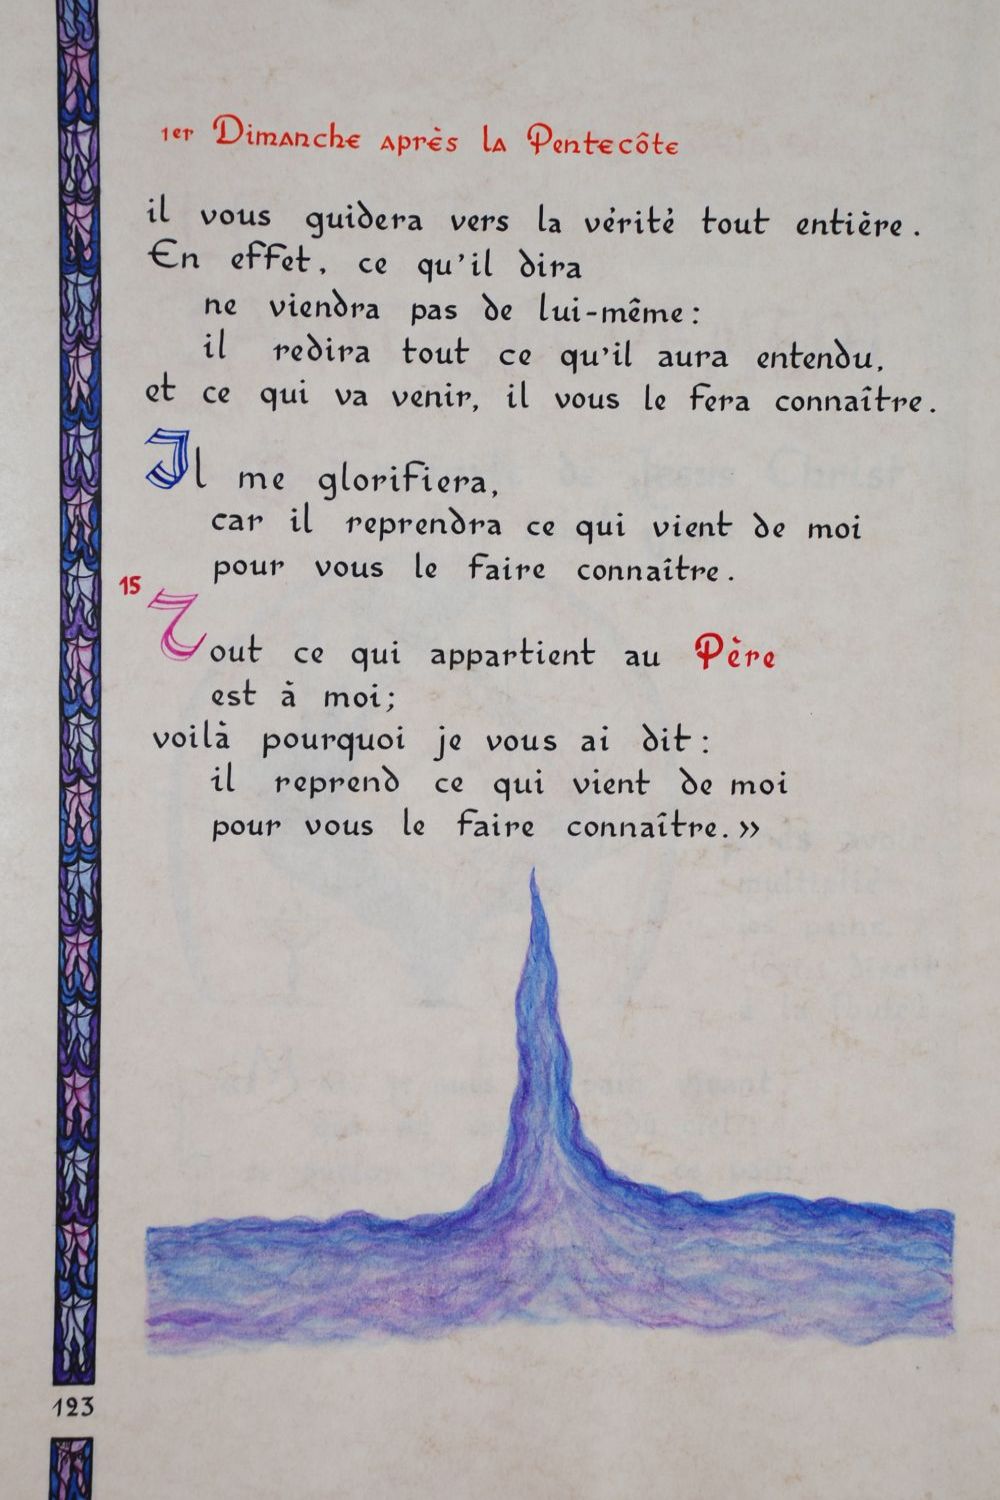 1er Dimanche après la Pentecôte
il vous guidera vers la vérité tout entière.
En effet, ce qu'il dira
ne viendra pas de lui-même:
il redira tout ce qu'il aura entendu,
et ce qui va venir, il vous le fera connaître.
Il me glorifiera,
car il reprendra ce qui vient de moi
pour vous le faire connaître.
15
Tout ce qui appartient au Père
est à moi;
voilà pourquoi je vous ai dit:
il reprend ce qui vient de moi
pour vous le faire connaître.»
123